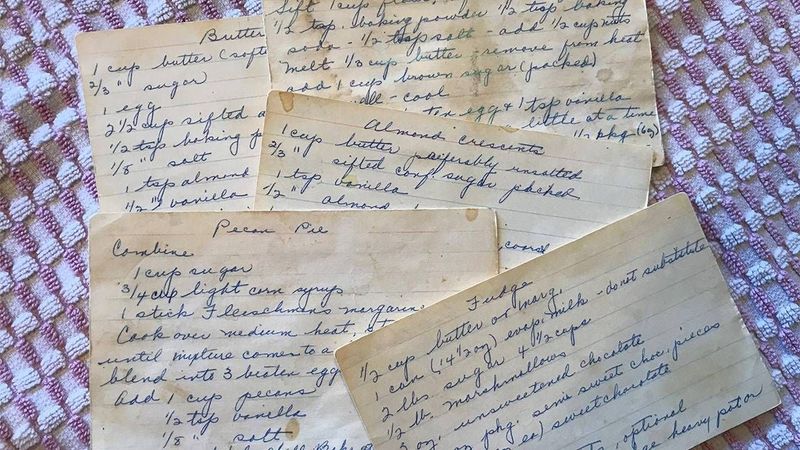 Butter
1 cup butter (soft
2/3 " sugar
1 egg
2 1/2 cup sifted
1/2 tsp baking
1/8 " salt
1 tsp almond
1/2 " vanilla
sift 1 cup
1/2 tsp. baking powder 1/2 tsp baking
soda - 1/2 tsp salt - add 1/2 cup nuts
Melt 1/3 cup butter - remove from heat
add 1 cup brown sugar (packed)
- cool
egg & 1 tsp vanilla
little at a time
1/2 pkg (6oz)
Almond Crescents
1 cup butter preferably unsalted
2/3 " sifted conf. sugar packed
1 tsp vanilla
1/2 " almond
Pecan Pie
Combine
1 cup sugar
3/4 cup light corn syrup
1 stick Fleischmans margarine
Cook over medium heat,
until mixture comes to a
blend into 3 beaten egg
add 1 cup pecans
1/2 tsp vanilla
1/8 " salt
Fudge
1/2 cup butter or marg.
1 can (14 1/2 oz) evap. milk - do not substitute
2 lbs. sugar 4 1/2 cups
1/2 lb. marshmallows
oz. unsweetened chocolate
pkg. semi sweet choc. pieces
sweet chocolate
optional
heavy pot or